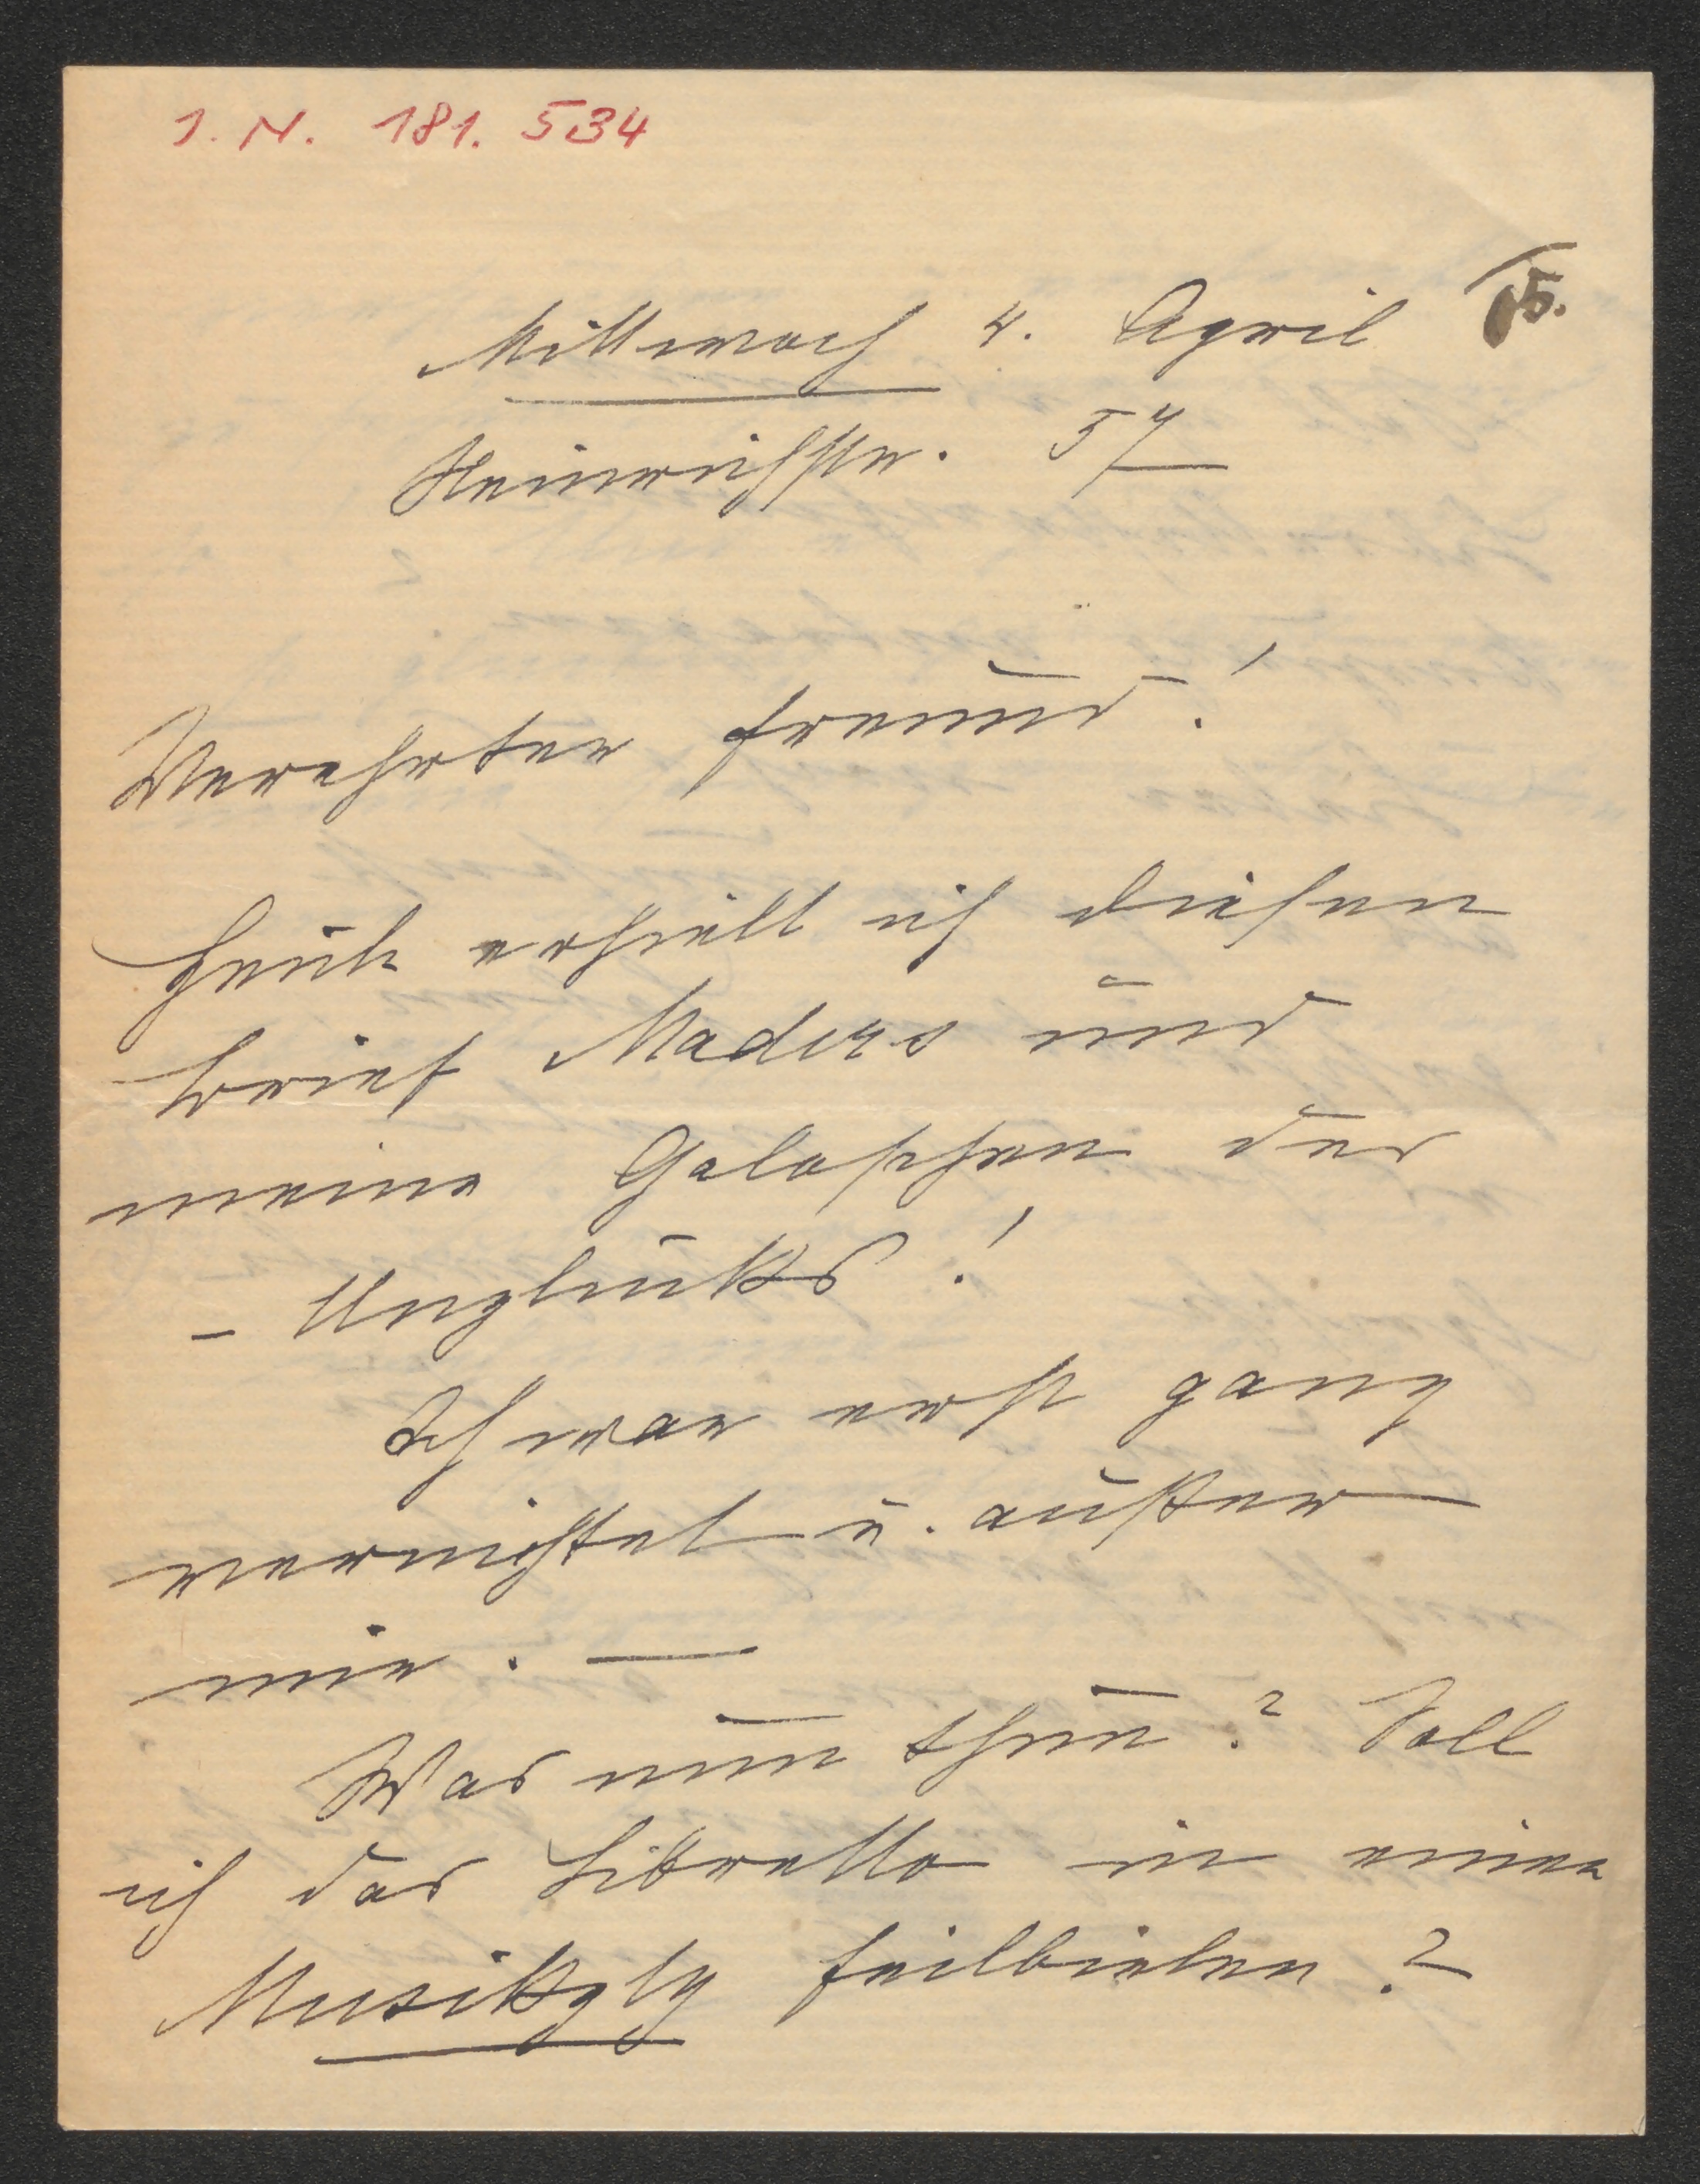 I. N. 181. 534
Mittwoch 4. April 05.
Heinrichstr. 57
Verehrter Freund!
Heute erhielt ich diesen
Brief Maders und
meine Galoschen des
– Unglücks!
Ich war erst ganz
vernichtet u. außer
mir. —
Was nun thun? Soll
ich das Libretto in einer
Musikztg feilbieten?